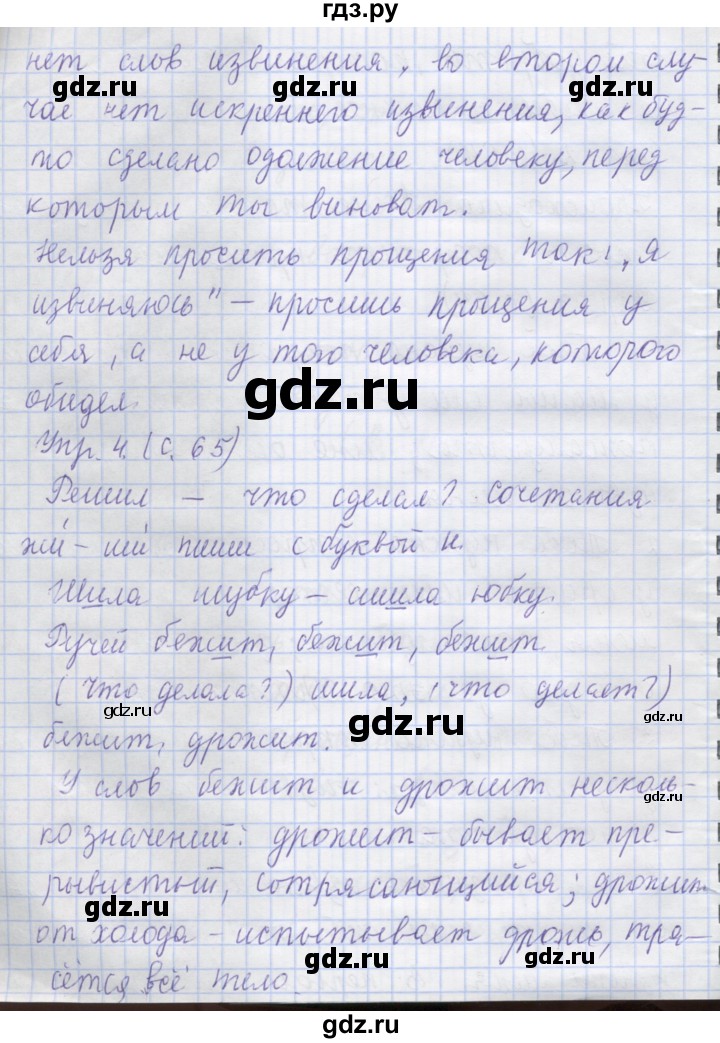 гдз.ру
нет слов извинения, во втором слу-
gdz.ru gdz.ru
чае нет искреннего извинения, как буд-
то сделано одолжение человеку, перед
которым ты виноват.
Нельзя просить прощения так: „Я
извиняюсь" – просишь прощения у
себя, а не у того человека, которого
gdz.ru
обидел.
Упр. 4. (с. 65)
Решил – что сделал? сочетания
жи – ши пиши с буквой и.
Шила шубку – сшила юбку.
Ручей бежит, бежит, бежит.
(что делала?) шила, (что делает?)
gdz.ru gdz.ru gdz.ru
бежит, дрожит.
У слов бежит и дрожит несколь-
gdz.ru
ко значений: дрожит – бывает пре-
рывистый, сотрясающийся; дрожит
gdz.ru gdz.ru
от холода – испытывает дрожь, тря-
сётся всё тело.
gdz.ru
gdz.ru